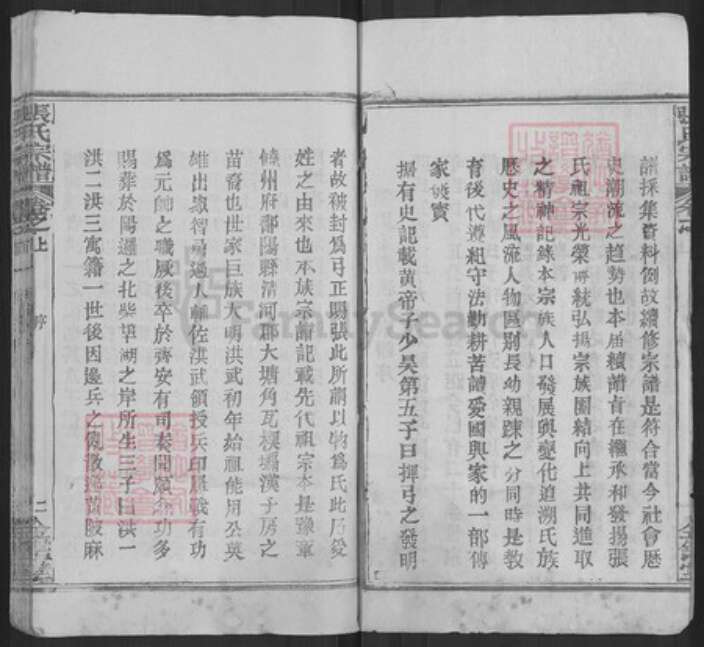 譜採集資料例故續修宗譜是符合當今社會歷
史潮流之趨勢也本屆續譜旨在繼承和發揚張
氏祖宗光榮傳統弘揚宗族團結向上共同進取
之精神記錄本宗族人口發展與變化追溯氏族
歷史之風流人物區別長幼親踈之分同時是教
育後代遵祖守法勤耕苦讀愛國與家的一部傳
家寶
據有史記載黃帝子少昊第五子曰揮弓之發明
者故被封爲弓正賜張此所謂以物爲氏此乃受
姓之由來也本族宗譜記載先代祖宗本是豫章
饒州府鄱陽縣清河郡大塘角瓦漢子房之
苗裔也世家巨族大明洪武初年始祖能用公英
雄出衆智勇過人輔佐洪武領授兵印屢戰有功
爲元帥之職厥後卒於齊安有司奏開顯功多
賜葬於陽邏之北柴望湖之岸所生三子曰洪一
洪二洪三寓籍一世後因邊兵之散黃陂麻
張氏宗譜
卷之上
序
二
張氏宗譜
FamilySearch